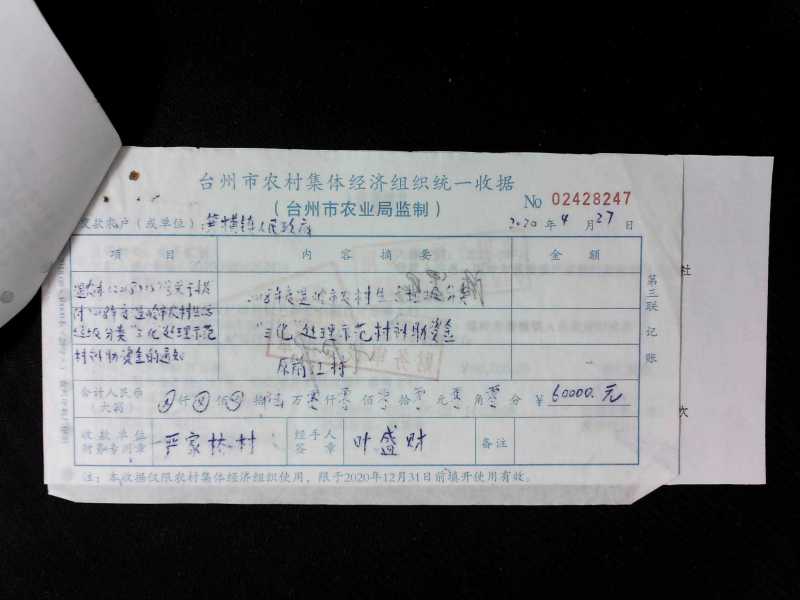 台州市农村集体经济组织统一收据
(台州市农业局监制)
No 02428247
交款农户(或单位) 箬横镇人民政府 2020 年 4 月 27 日
项 目 内 容 摘 要 金 额
付2018年度温岭市农村生活
垃圾分类"三化"处理示范
村补助资金的通知
2018年度温岭市农村生
"三化"处理示范村补助资金
原前江村
合计人民币
(大写)
仟 佰 拾 陆 万 零 仟 零 佰 零 拾 零 元 零 角 零 分 ¥ 60000.元
收款单位
财务专用章
严家林村
经手人
签 章
叶盛财
备注
注:本收据仅限农村集体经济组织使用,限于2020年12月31日前填开使用有效。
第三联 记账
社
次